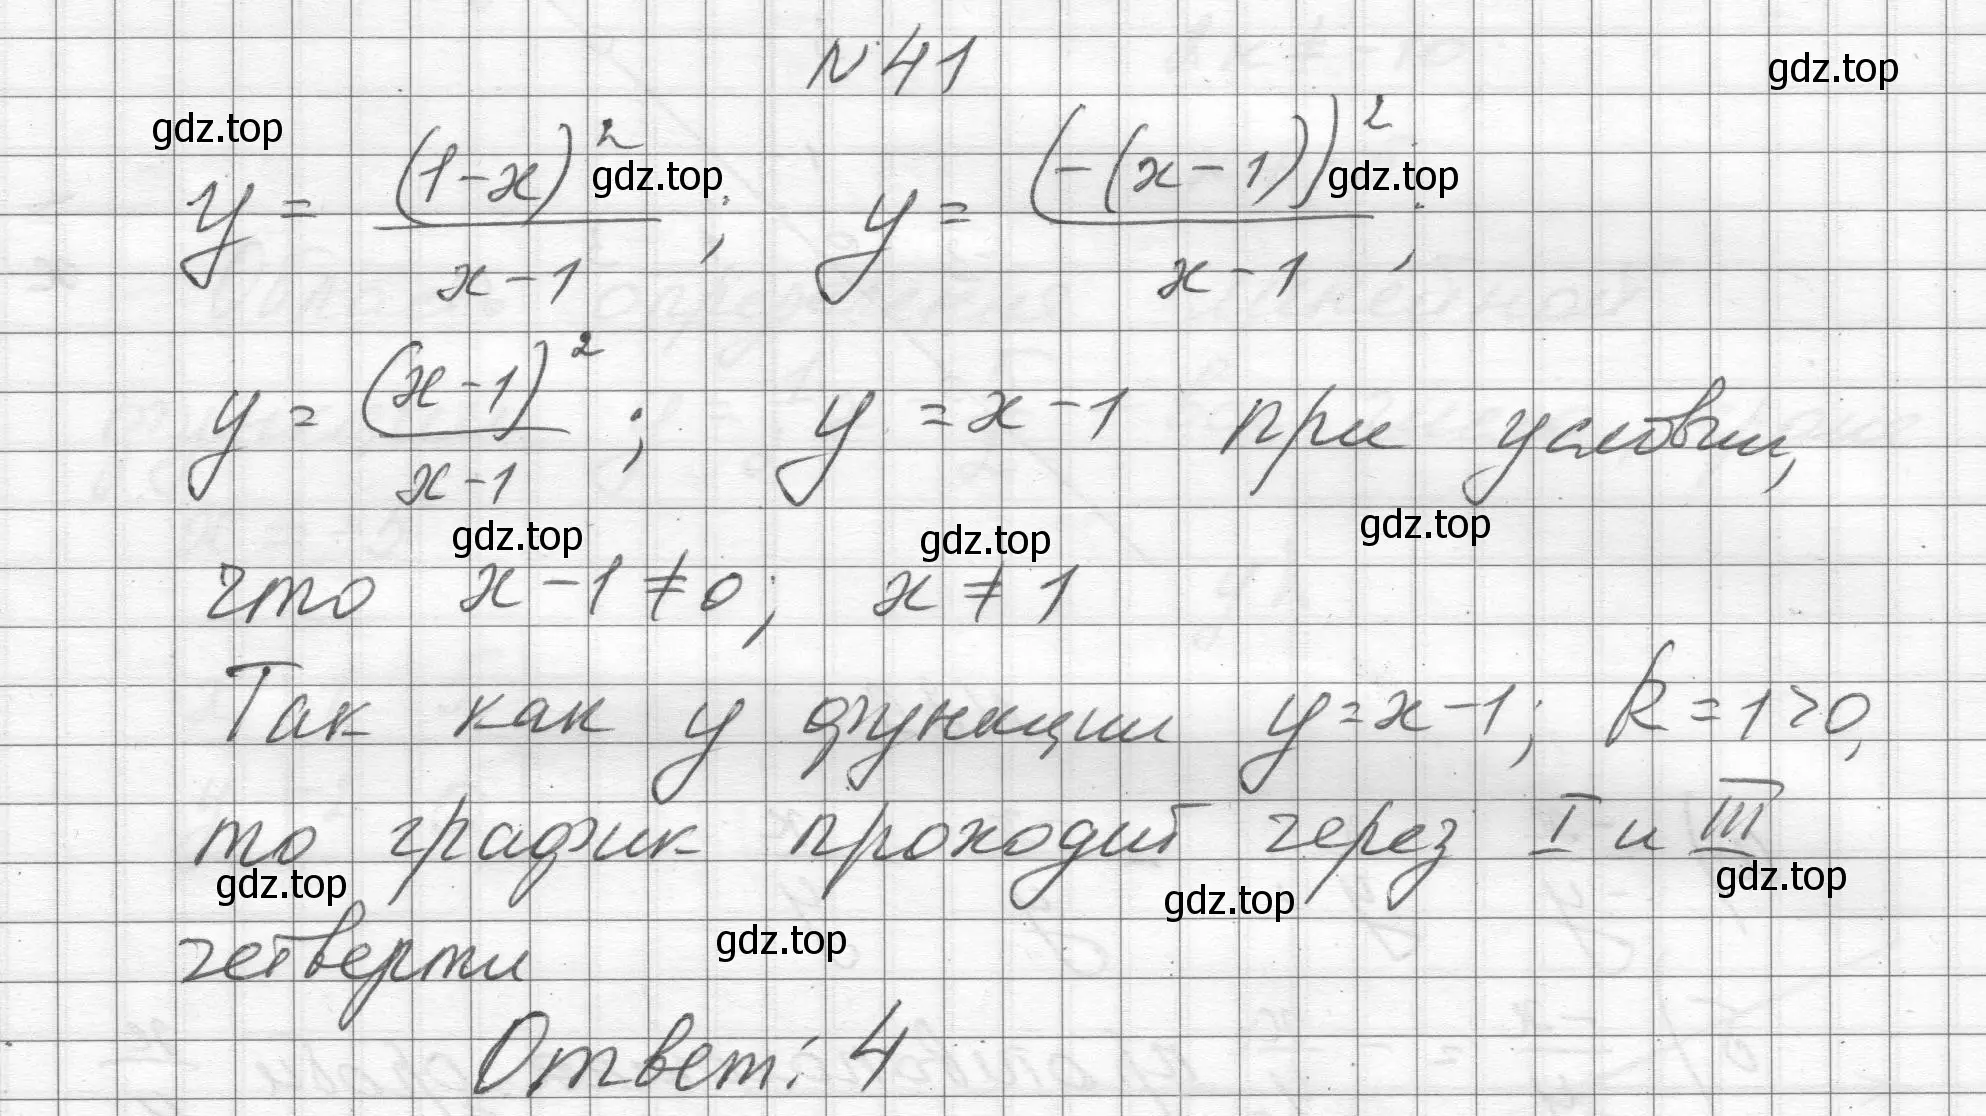 № 41
gdz.top
gdz.top
y = (1-x)² / x-1 ; y = (-(x-1))² / x-1 ;
gdz.top gdz.top
y = (x-1)² / x-1 ; y = x-1 при условии,
gdz.top gdz.top gdz.top
что x-1≠0; x≠1
Так как у функции y=x-1; k=1>0,
то график проходит через I и III
gdz.top gdz.top gdz.top
четверти
gdz.top
Ответ: 4